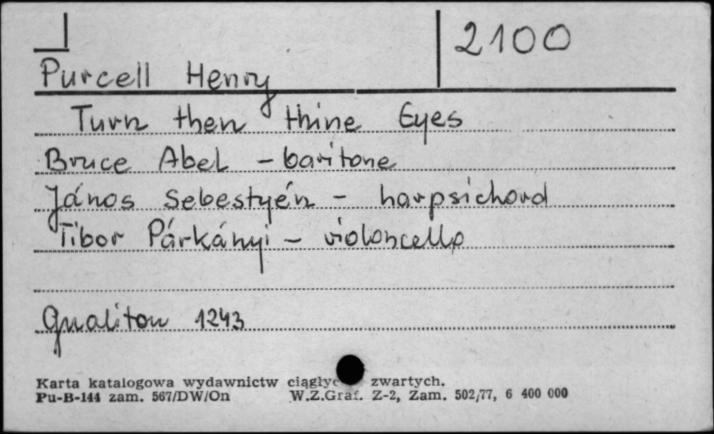 2100
Purcell Henry
Turn then thine Eyes
Bruce Abel - baritone
János Sebestyén - harpsichord
Tibor Párkányi - violoncello
Qualiton 1243
Karta katalogowa wydawnictw zwartych.
Pu-B-144 zam. 567/DW/On W.Z.Graf. Z-2, Zam. 502/77, 6 400 000